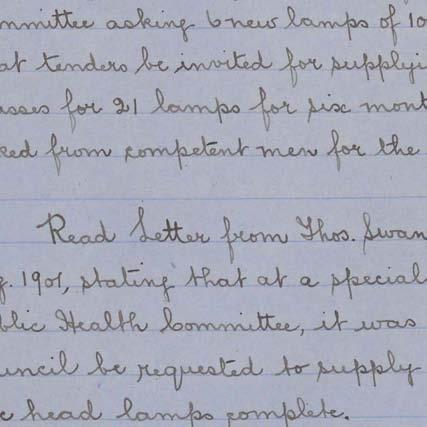 mmittee asking 6 new lamps of 10
at tenders be invited for supplyi
asses for 21 lamps for six mont
ked from competent men for the
Read Letter from Thos. Swan
g. 1901, stating that at a special
blic Health Committee, it was
uncil be requested to supply
e head lamps complete.